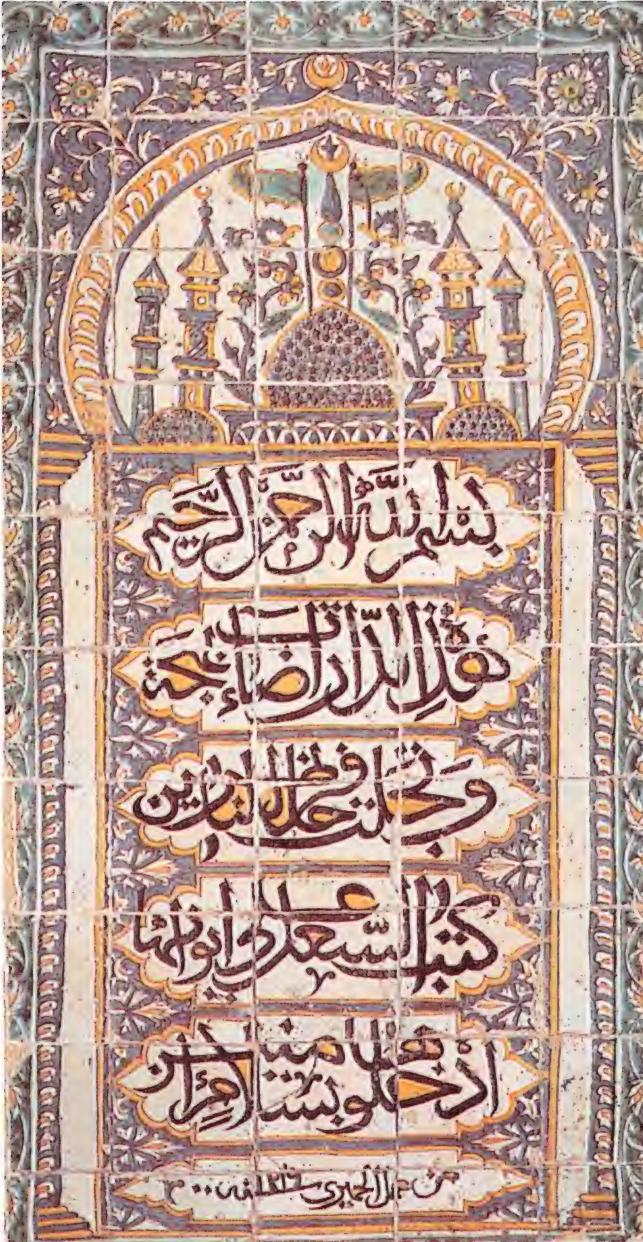 بسم الله الرحمن الرحيم
هذه الدار اضاءت بهجة
وتجلت فرحا للناظرين
كتب السعد على ابوابها
ادخلوها بسلام ءامنين
من عمل الخميري